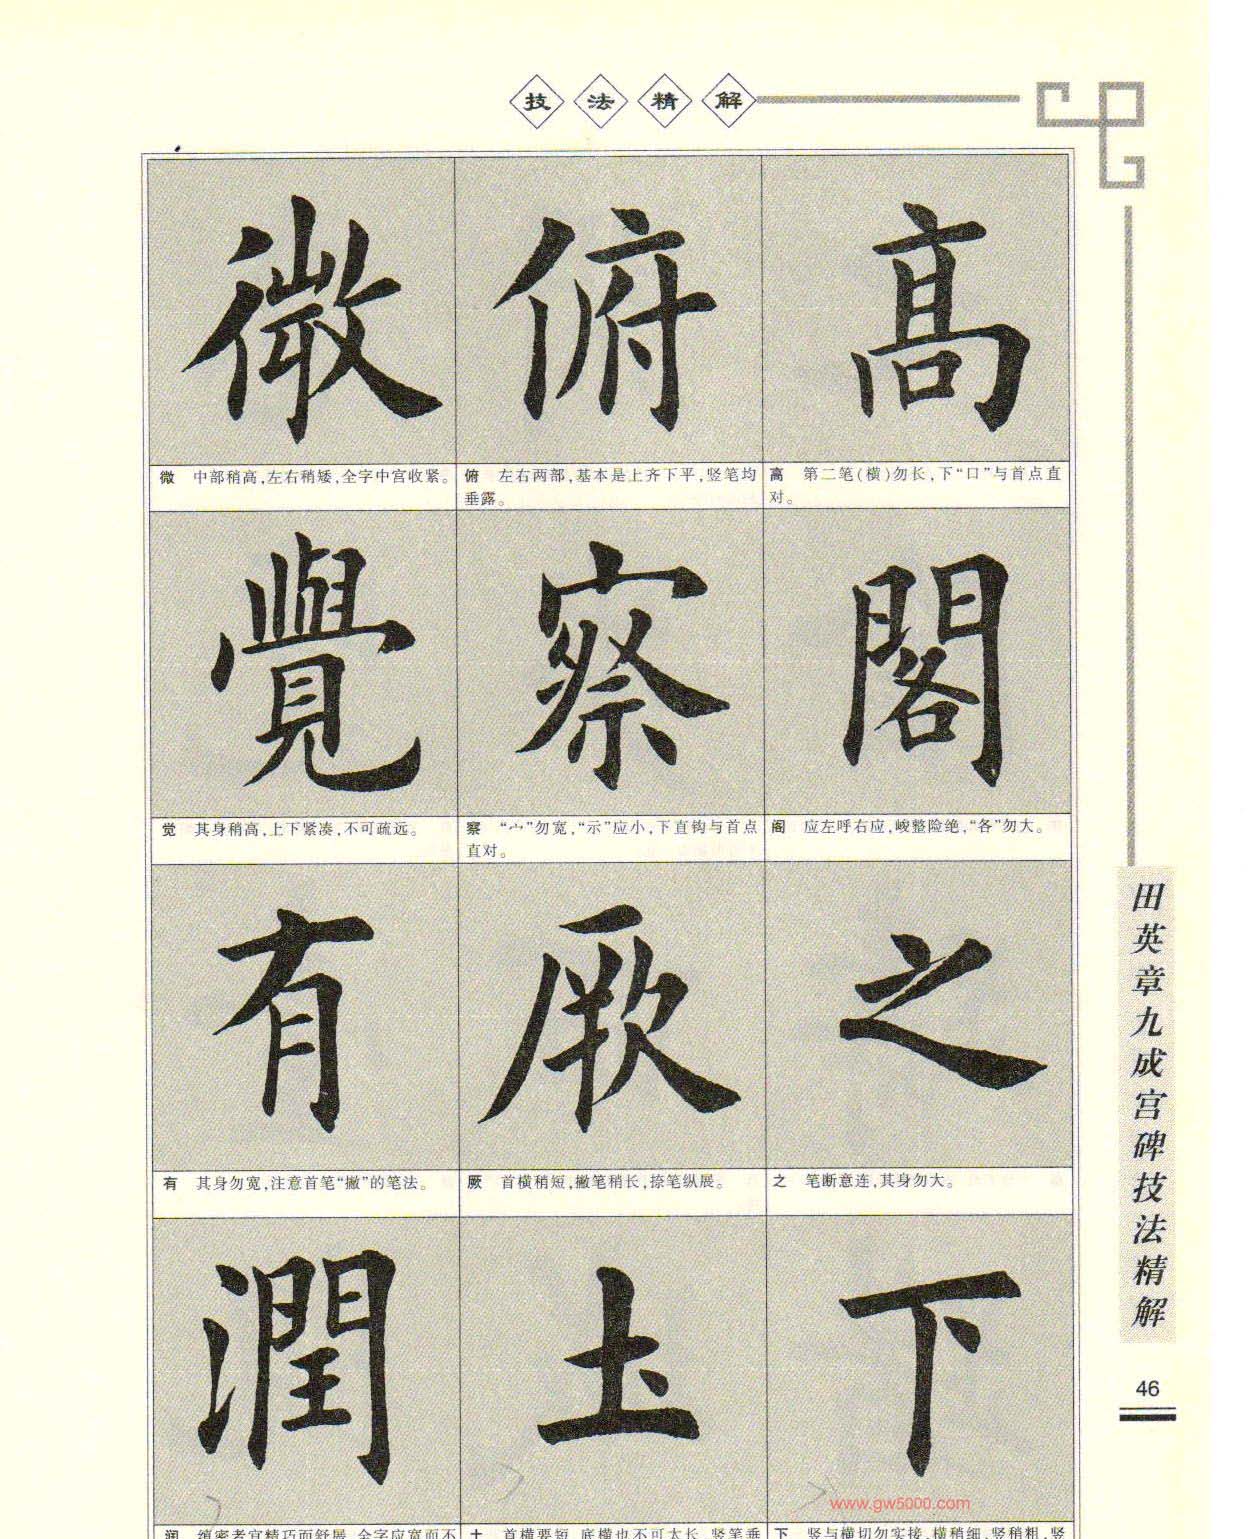 技法精解
高 俯 微
高 第二笔(横)勿长,下“口”与首点直
对。
俯 左右两部,基本是上齐下平,竖笔均
垂露。
微 中部稍高,左右稍矮,全字中宫收紧。
閣 察 覺
阁 应左呼右应,峻整险绝,“各”勿大。
察 “宀”勿宽,“示”应小,下直钩与首点
直对。
觉 其身稍高,上下紧凑,不可疏远。
之 厥 有
之 笔断意连,其身勿大。
厥 首横稍短,撇笔稍长,捺笔纵展。
有 其身勿宽,注意首笔“撇”的笔法。
下 土 潤
下 竖与横切勿实接,横稍细,竖稍粗,竖
土 首横要短,底横也不可太长,竖笔垂
润 缜密者宜精巧而舒展,全字应宽而不
田英章九成宫碑技法精解
46
www.gw5000.com